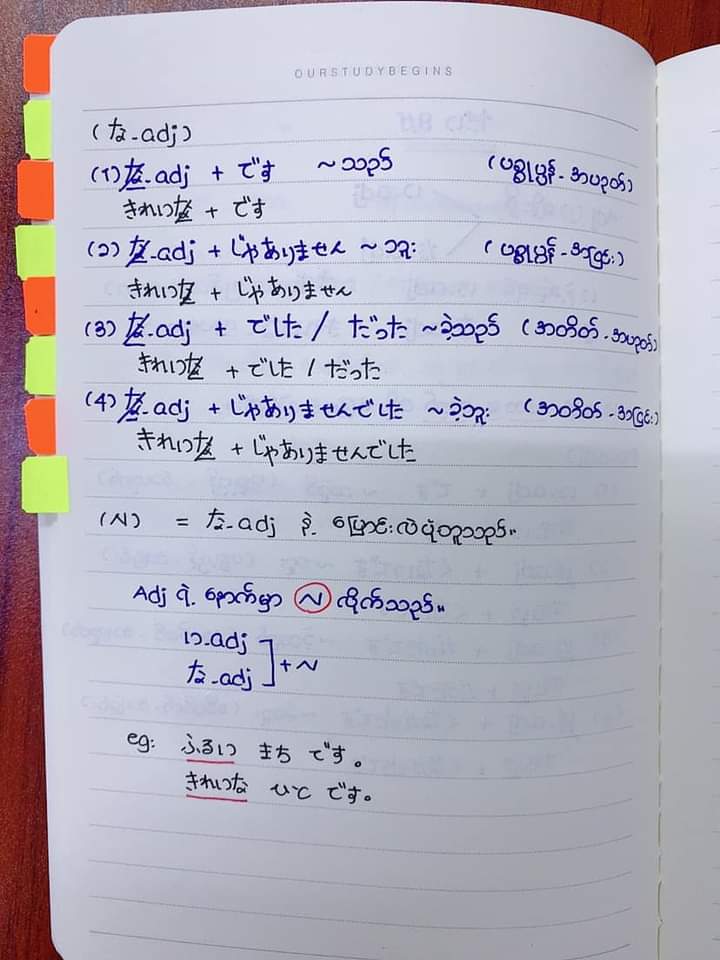 OURSTUDYBEGINS
(な-adj)
(၁) な-adj + です ~သည် (ပစ္စုပ္ပန် - အပညတ်)
きれいな + です
(၂) な-adj + じゃありません ~ဘူး (ပစ္စုပ္ပန် - အငြင်း)
きれいな + じゃありません
(၃) な-adj + でした / だった ~ခဲ့သည် (အတိတ် - အပညတ်)
きれいな + でした / だった
(၄) な-adj + じゃありませんでした ~ခဲ့ဘူး (အတိတ် - အငြင်း)
きれいな + じゃありませんでした
(N) = な-adj နဲ့ ပြောင်းလဲပုံတူသည်။
Adj ရဲ့ နောက်မှာ N လိုက်သည်။
い-adj
な-adj ] + N
eg: ふるい まち です。
きれいな ひと です。